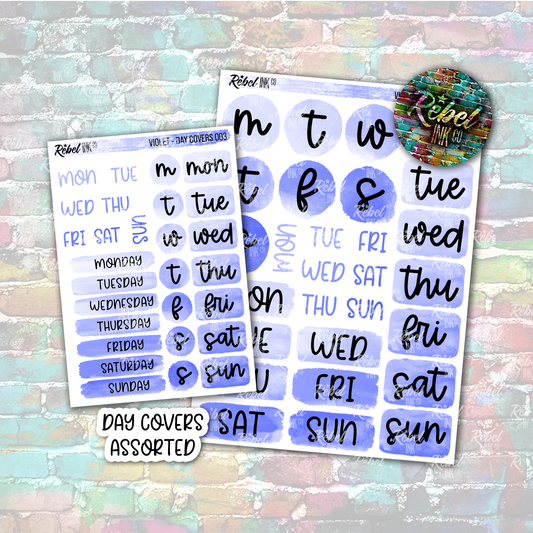 Rebel INK CO
VIOLET - DAY COVERS 003
MON TUE
WED THU
FRI SAT
SUN
MONDAY
TUESDAY
WEDNESDAY
THURSDAY
FRIDAY
SATURDAY
SUNDAY
m mon
t tue
w wed
t thu
f fri
s sat
s sun
DAY COVERS
ASSORTED
Rebel INK CO
m t w
t f s
tue
wed
thu
fri
sat
sun
MON
TUE FRI
WED SAT
THU SUN
WED
FRI
SAT SUN
Rebel
INK CO